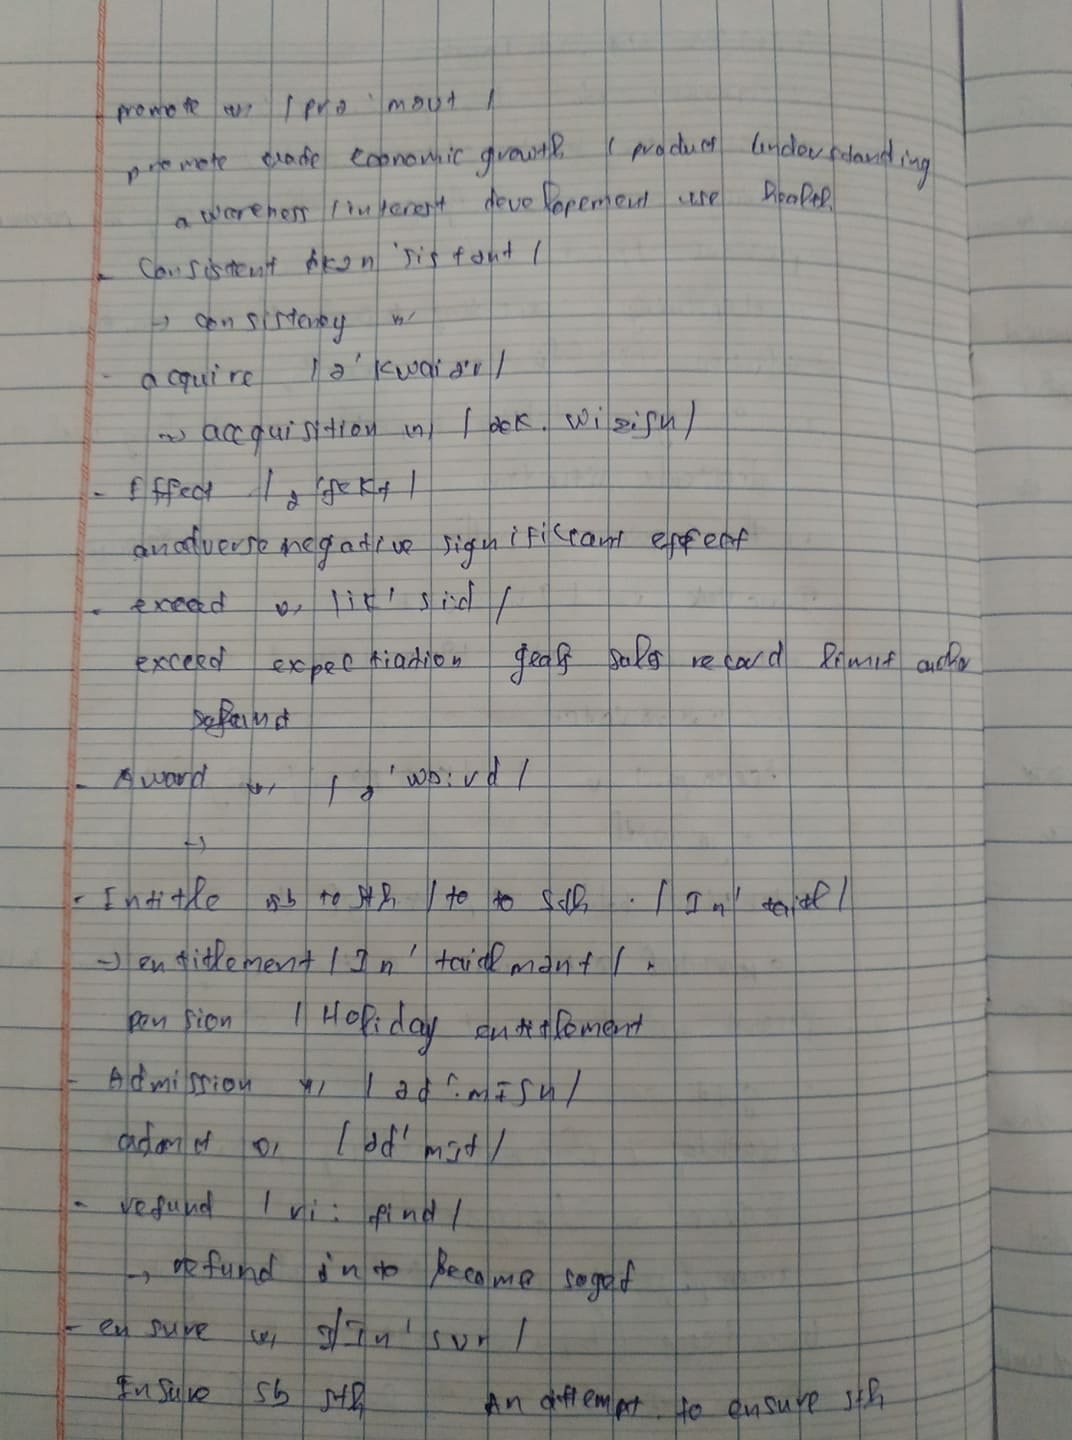 promote v, / prə ' moʊt /
promote trade economic growth / product understanding
awareness / interest developement use health
- Consistent /kən 'sistənt /
→ consistency n,
- acquire / ə' kwaiər /
→ accquisition n, / æk. wi ziʃn /
- Effect / ə 'fekt /
an adverse negative significant effect
- exceed v, / ik' si:d /
exceed expectiation goals sales record limit
- Award v, / ə 'wɔ:rd /
→
- Intitle sb to sth / to to sth . / In' taitl /
→ entitlement / In' taitlmənt / .
pension / Holiday entitlement
- Admission n, / əd 'mIʃn /
admit v, / əd' mIt /
- refund / ri: fʌnd /
→ refund in to become
- ensure v, / In' ʃʊr /
Ensure sb sth An attempt to ensure sth